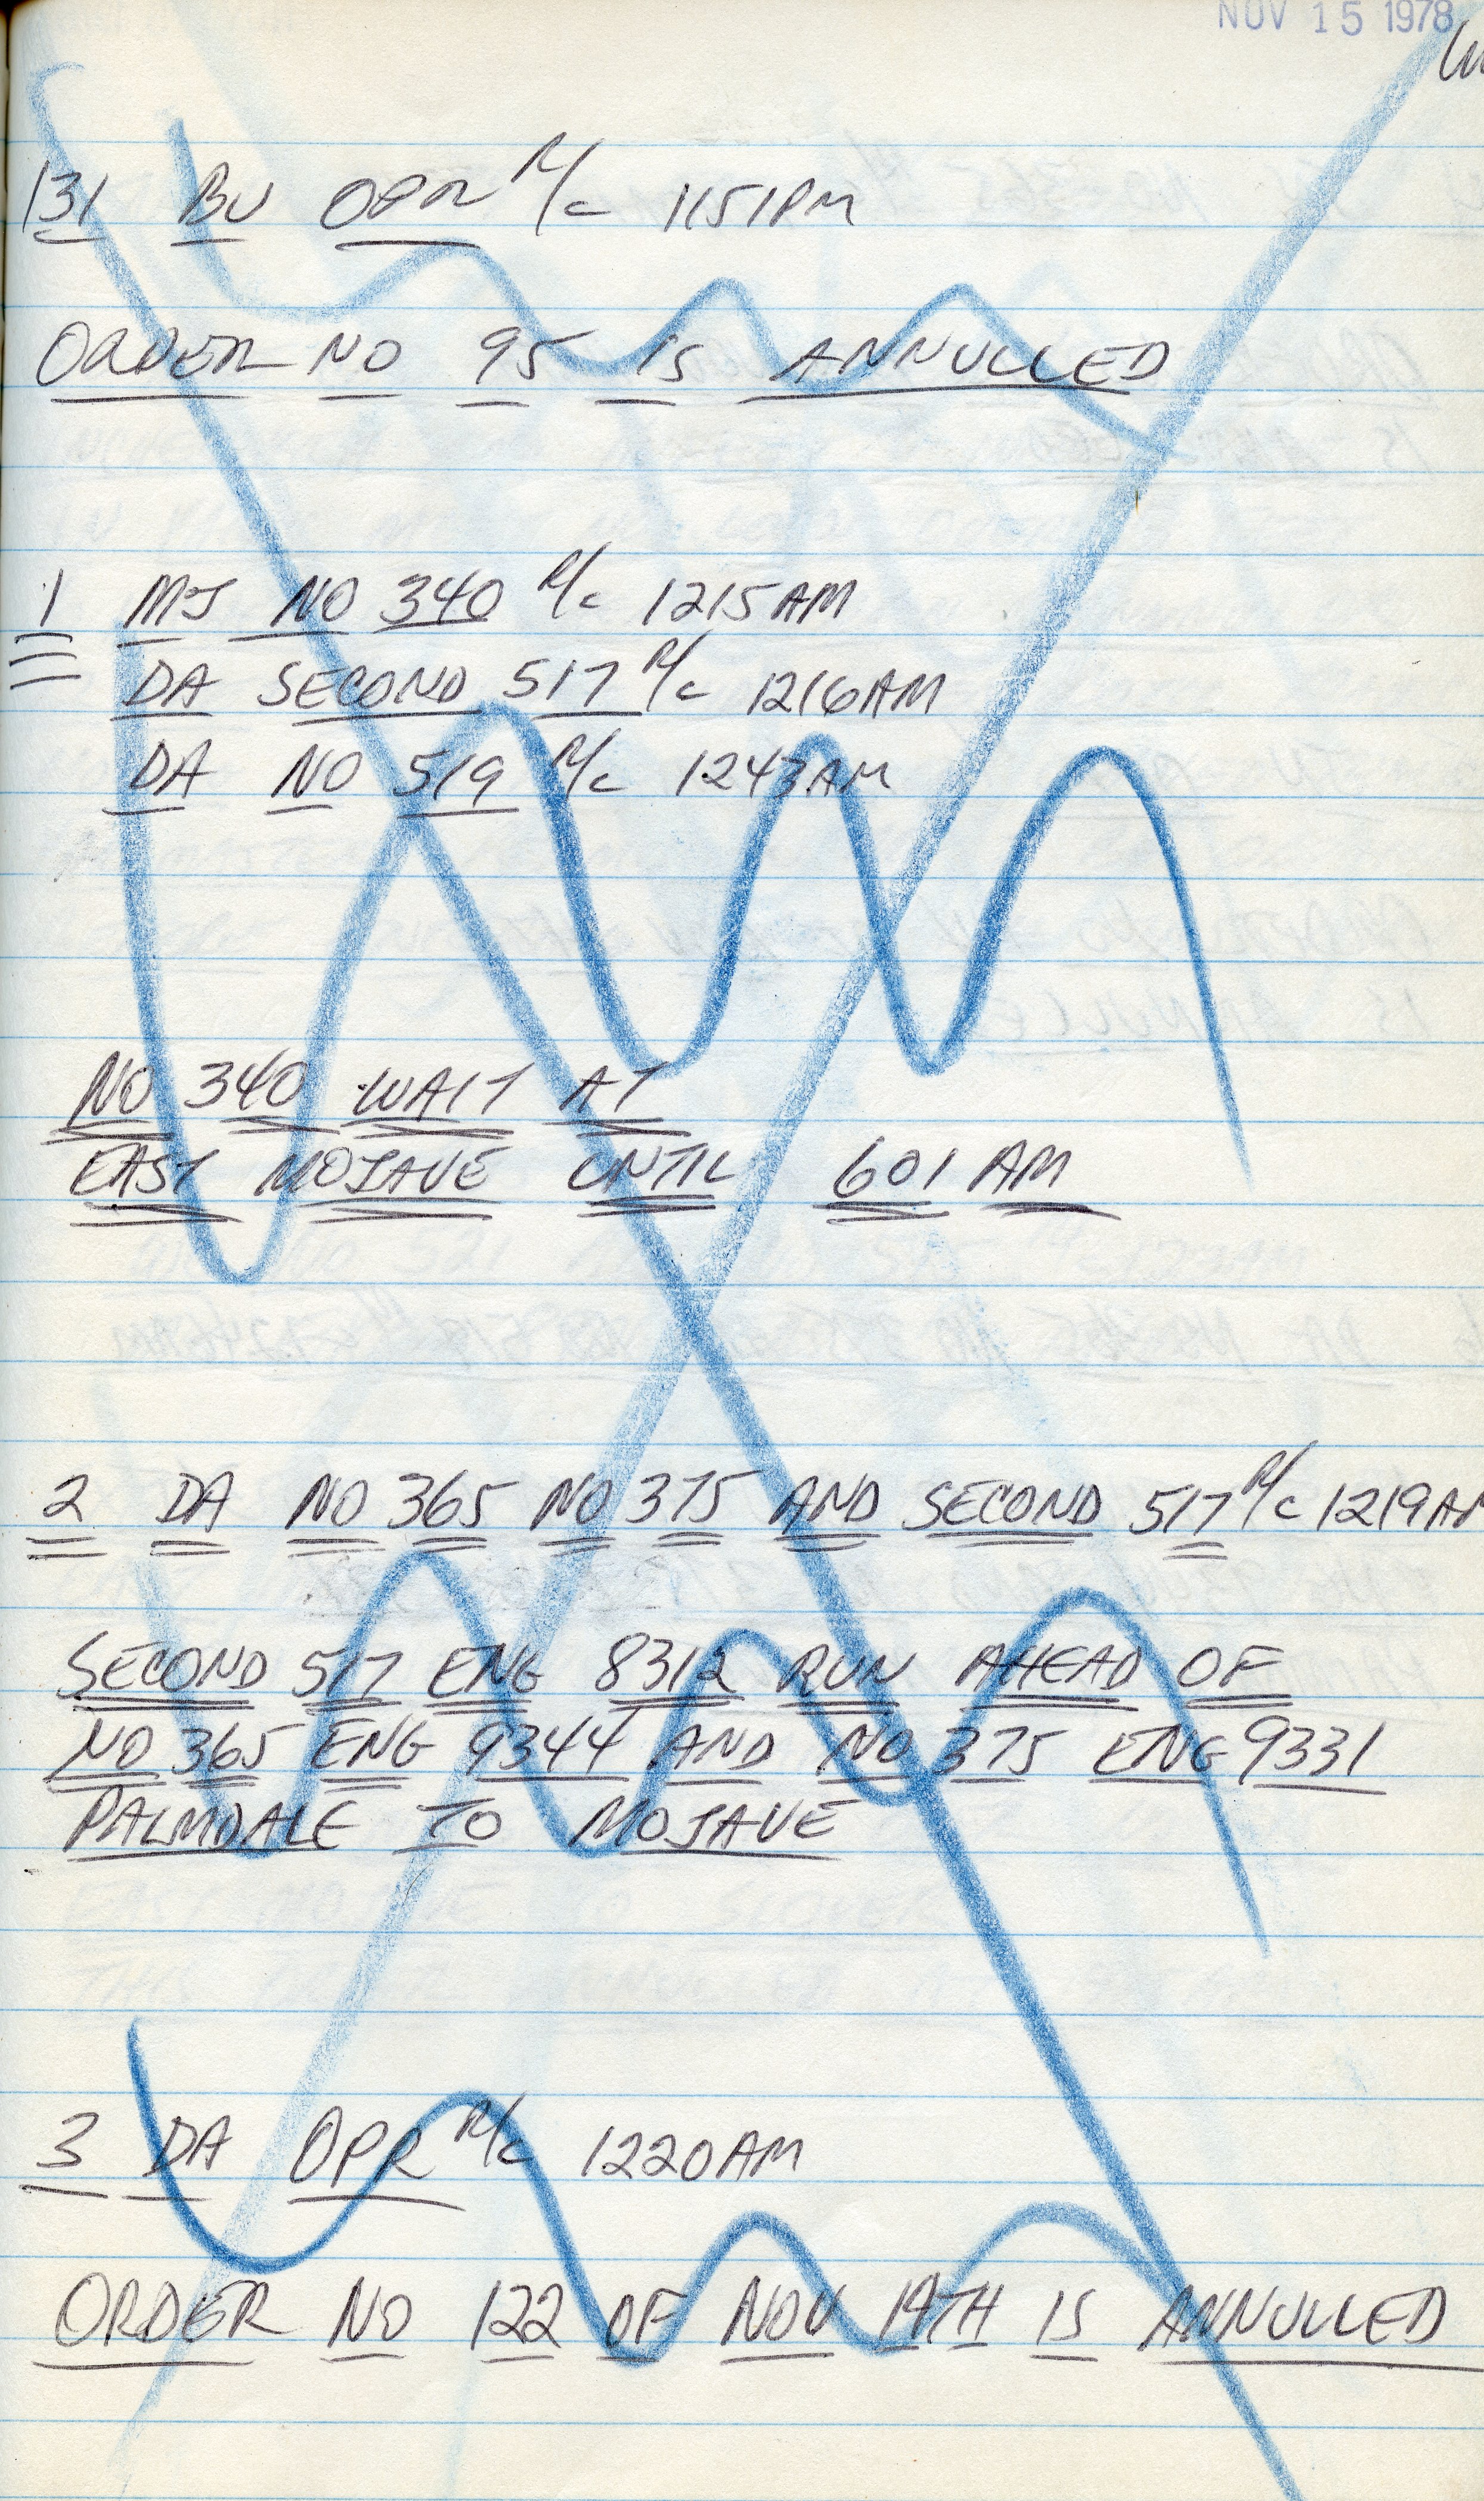 NOV 15 1978
131 BU OPR M/c 1151PM
ORDER NO 95 IS ANNULLED
1 MJ NO 340 M/c 1215AM
DA SECOND 517 M/c 1216AM
DA NO 519 M/c 1243AM
NO 340 WAIT AT
EAST MOJAVE UNTIL 601 AM
2 DA NO 365 NO 375 AND SECOND 517 M/c 1219AM
SECOND 517 ENG 8312 RUN AHEAD OF
NO 365 ENG 9344 AND NO 375 ENG 9331
PALMDALE TO MOJAVE
3 DA OPR M/c 1220AM
ORDER NO 122 OF NOV 14TH IS ANNULLED